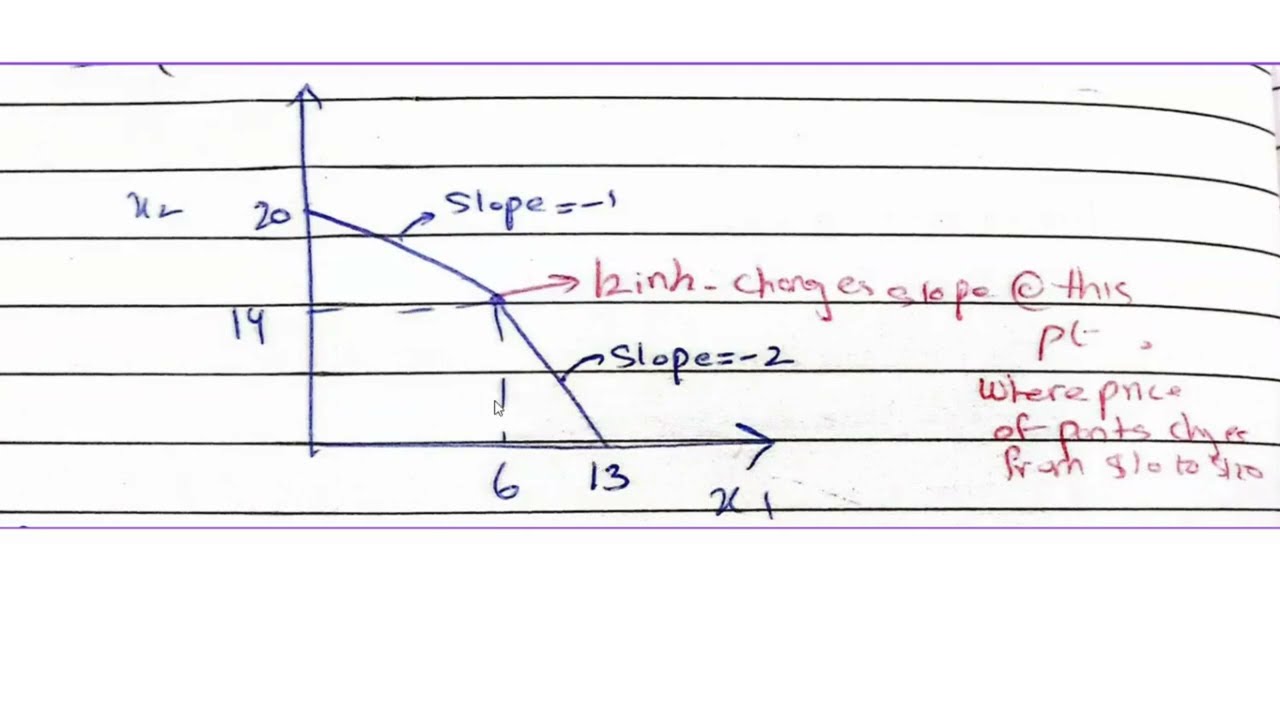 x₂ 20 Slope=-1
kink- changes slope @ this
14 pt.
Slope=-2
where price
of pants chges
from $10 to $20
6 13
x₁